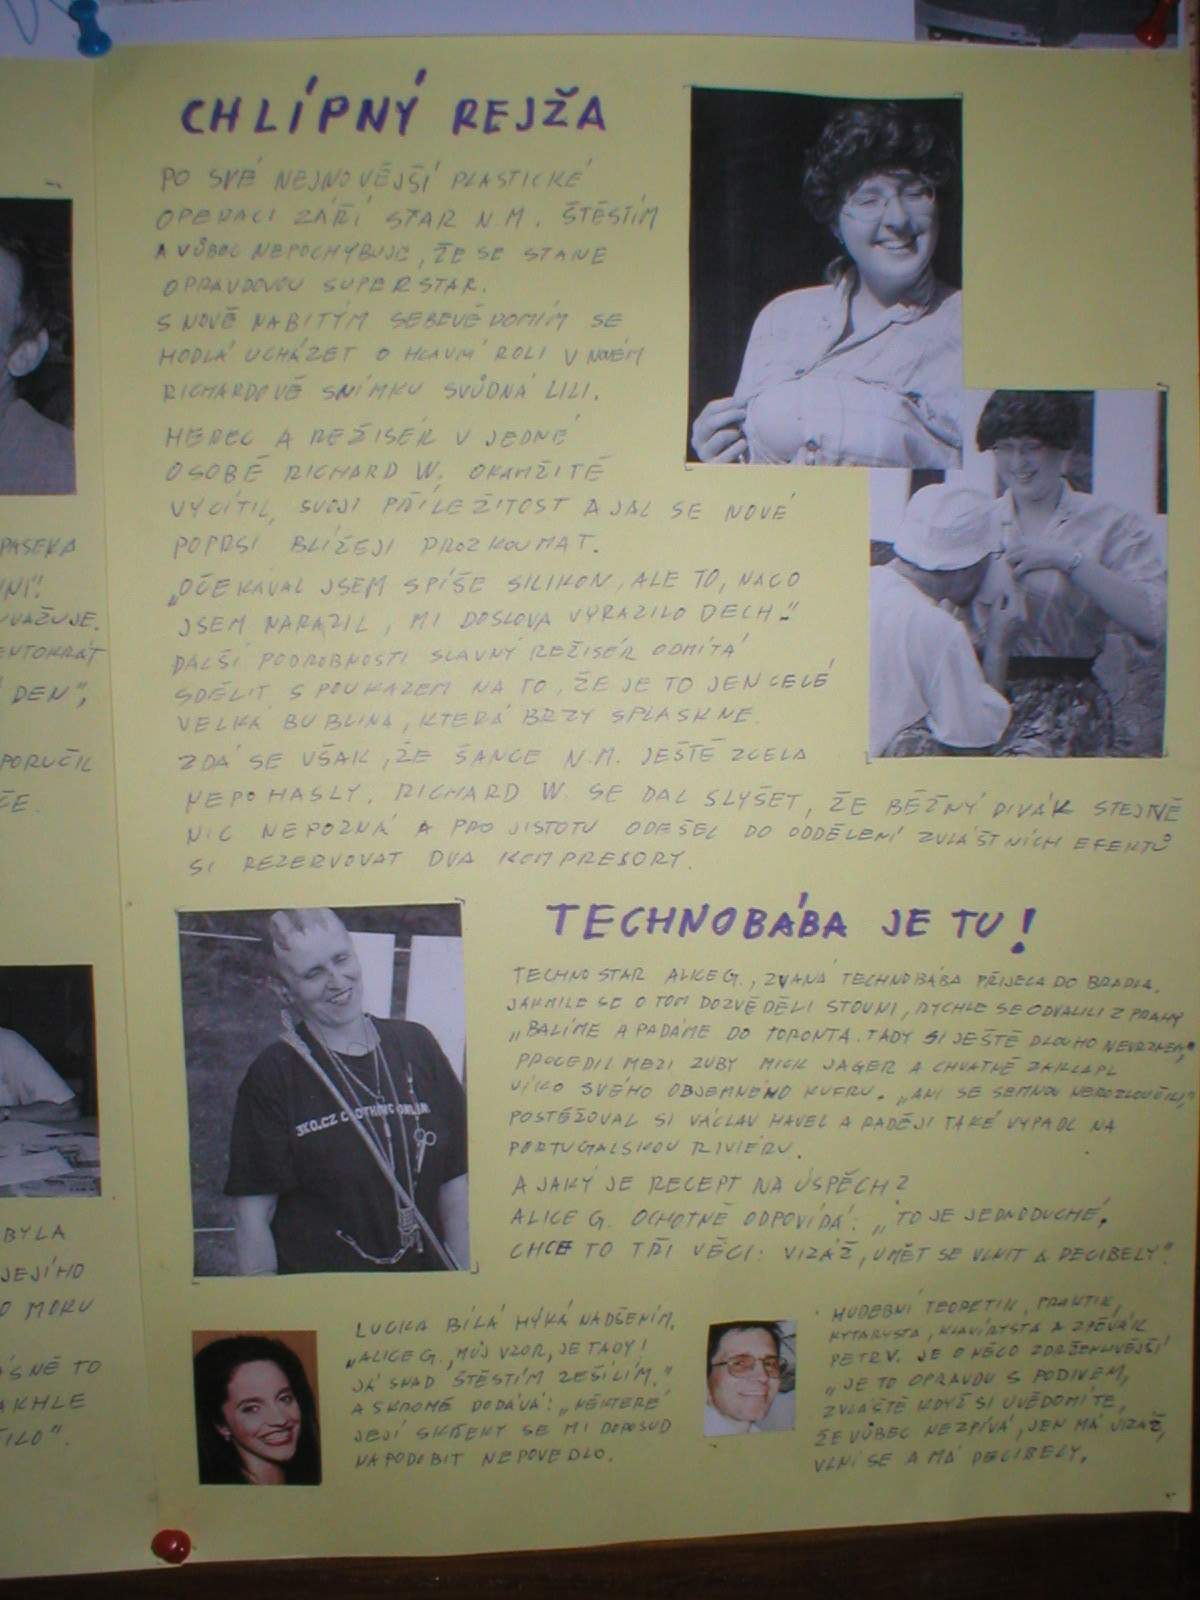 PASEKA
VNÍ!
UVAŽUJE.
ENTOKRÁT
DEN",
PORUČIL
ČE.
BYLA
JEJÍHO
O MOKU
ÁSNĚ TO
AKHLE
TILO".
CHLÍPNÝ REJŽA
PO SVÉ NEJNOVĚJŠÍ PLASTICKÉ
OPERACI ZÁŘÍ STAR N M. ŠTĚSTÍM
A VŮBEC NEPOCHYBUJE, ŽE SE STANE
OPRAVDOVOU SUPERSTAR.
S NOVĚ NABITÝM SEBEVĚDOMÍM SE
HODLÁ UCHÁZET O HLAVNÍ ROLI V NOVÉM
RICHARDOVĚ SNÍMKU SVŮDNÁ LILI.
HEREC A REŽISÉR V JEDNÉ
OSOBĚ RICHARD W. OKAMŽITĚ
VYCÍTIL SVOJI PŘÍLEŽITOST A JAL SE NOVÉ
POPRSÍ BLÍŽEJI PROZKOUMAT.
„OČEKÁVAL JSEM SPÍŠE SILIKON, ALE TO, NACO
JSEM NARAZIL, MI DOSLOVA VYRAZILO DECH."
DALŠÍ PODROBNOSTI SLAVNÝ REŽISÉR ODMÍTÁ
SDĚLIT S POUKAZEM NA TO, ŽE JE TO JEN CELÉ
VELKÁ BUBLINA, KTERÁ BRZY SPLASKNE.
ZDÁ SE VŠAK, ŽE ŠANCE N.M. JEŠTĚ ZCELA
NEPOHASLY. RICHARD W. SE DAL SLYŠET, ŽE BĚŽNÝ DIVÁK STEJNĚ
NIC NEPOZNÁ A PRO JISTOTU ODEŠEL DO ODDĚLENÍ ZVLÁŠTNÍCH EFEKTŮ
SI REZERVOVAT DVA KOMPRESORY.
TECHNOBÁBA JE TU!
TECHNO STAR ALICE G., ZVANÁ TECHNOBÁBA PŘIJELA DO BRADLA.
JAKMILE SE O TOM DOZVĚDĚLI STOUNI, RYCHLE SE ODVALILI Z PRAHY
„BALÍME A PADÁME DO TORONTA. TADY SI JEŠTĚ DLOUHO NEVRZNEM,"
PROCEDIL MEZI ZUBY MICK JAGER A CHVATNĚ ZAKLAPL
VÍKO SVÉHO OBJEMNÉHO KUFRU. „ANI SE SEMNOU NEROZLOUČILI,"
POSTĚŽOVAL SI VÁCLAV HAVEL A RADĚJI TAKÉ VYPADL NA
PORTUGALSKOU RIVIÉRU.
A JAKÝ JE RECEPT NA ÚSPĚCH?
ALICE G. OCHOTNĚ ODPOVÍDÁ: „TO JE JEDNODUCHÉ.
CHCE TO TŘI VĚCI: VIZÁŽ, UMĚT SE VLNIT A DECIBELY".
3KO.CZ CLOTHING ONLINE
LUCKA BÍLÁ HÝKÁ NADŠENÍM.
„ALICE G., MŮJ VZOR, JE TADY!
JÁ SNAD ŠTĚSTÍM ZEŠÍLÍM."
A SKROMĚ DODÁVÁ: „NĚKTERÉ
JEJÍ SKŘEKY SE MI DOPOSUD
NAPODOBIT NEPOVEDLO.
HUDEBNÍ TEORETIK, PRAKTIK,
KYTARISTA, KLAVÍRISTA A ZPĚVÁK
PETR V. JE O NĚCO ZDRŽENLIVĚJŠÍ
„JE TO OPRAVDU S PODIVEM,
ZVLÁŠTĚ KDYŽ SI UVĚDOMÍTE,
ŽE VŮBEC NEZPÍVÁ, JEN MÁ VIZÁŽ,
VLNÍ SE A MÁ DECIBELY.